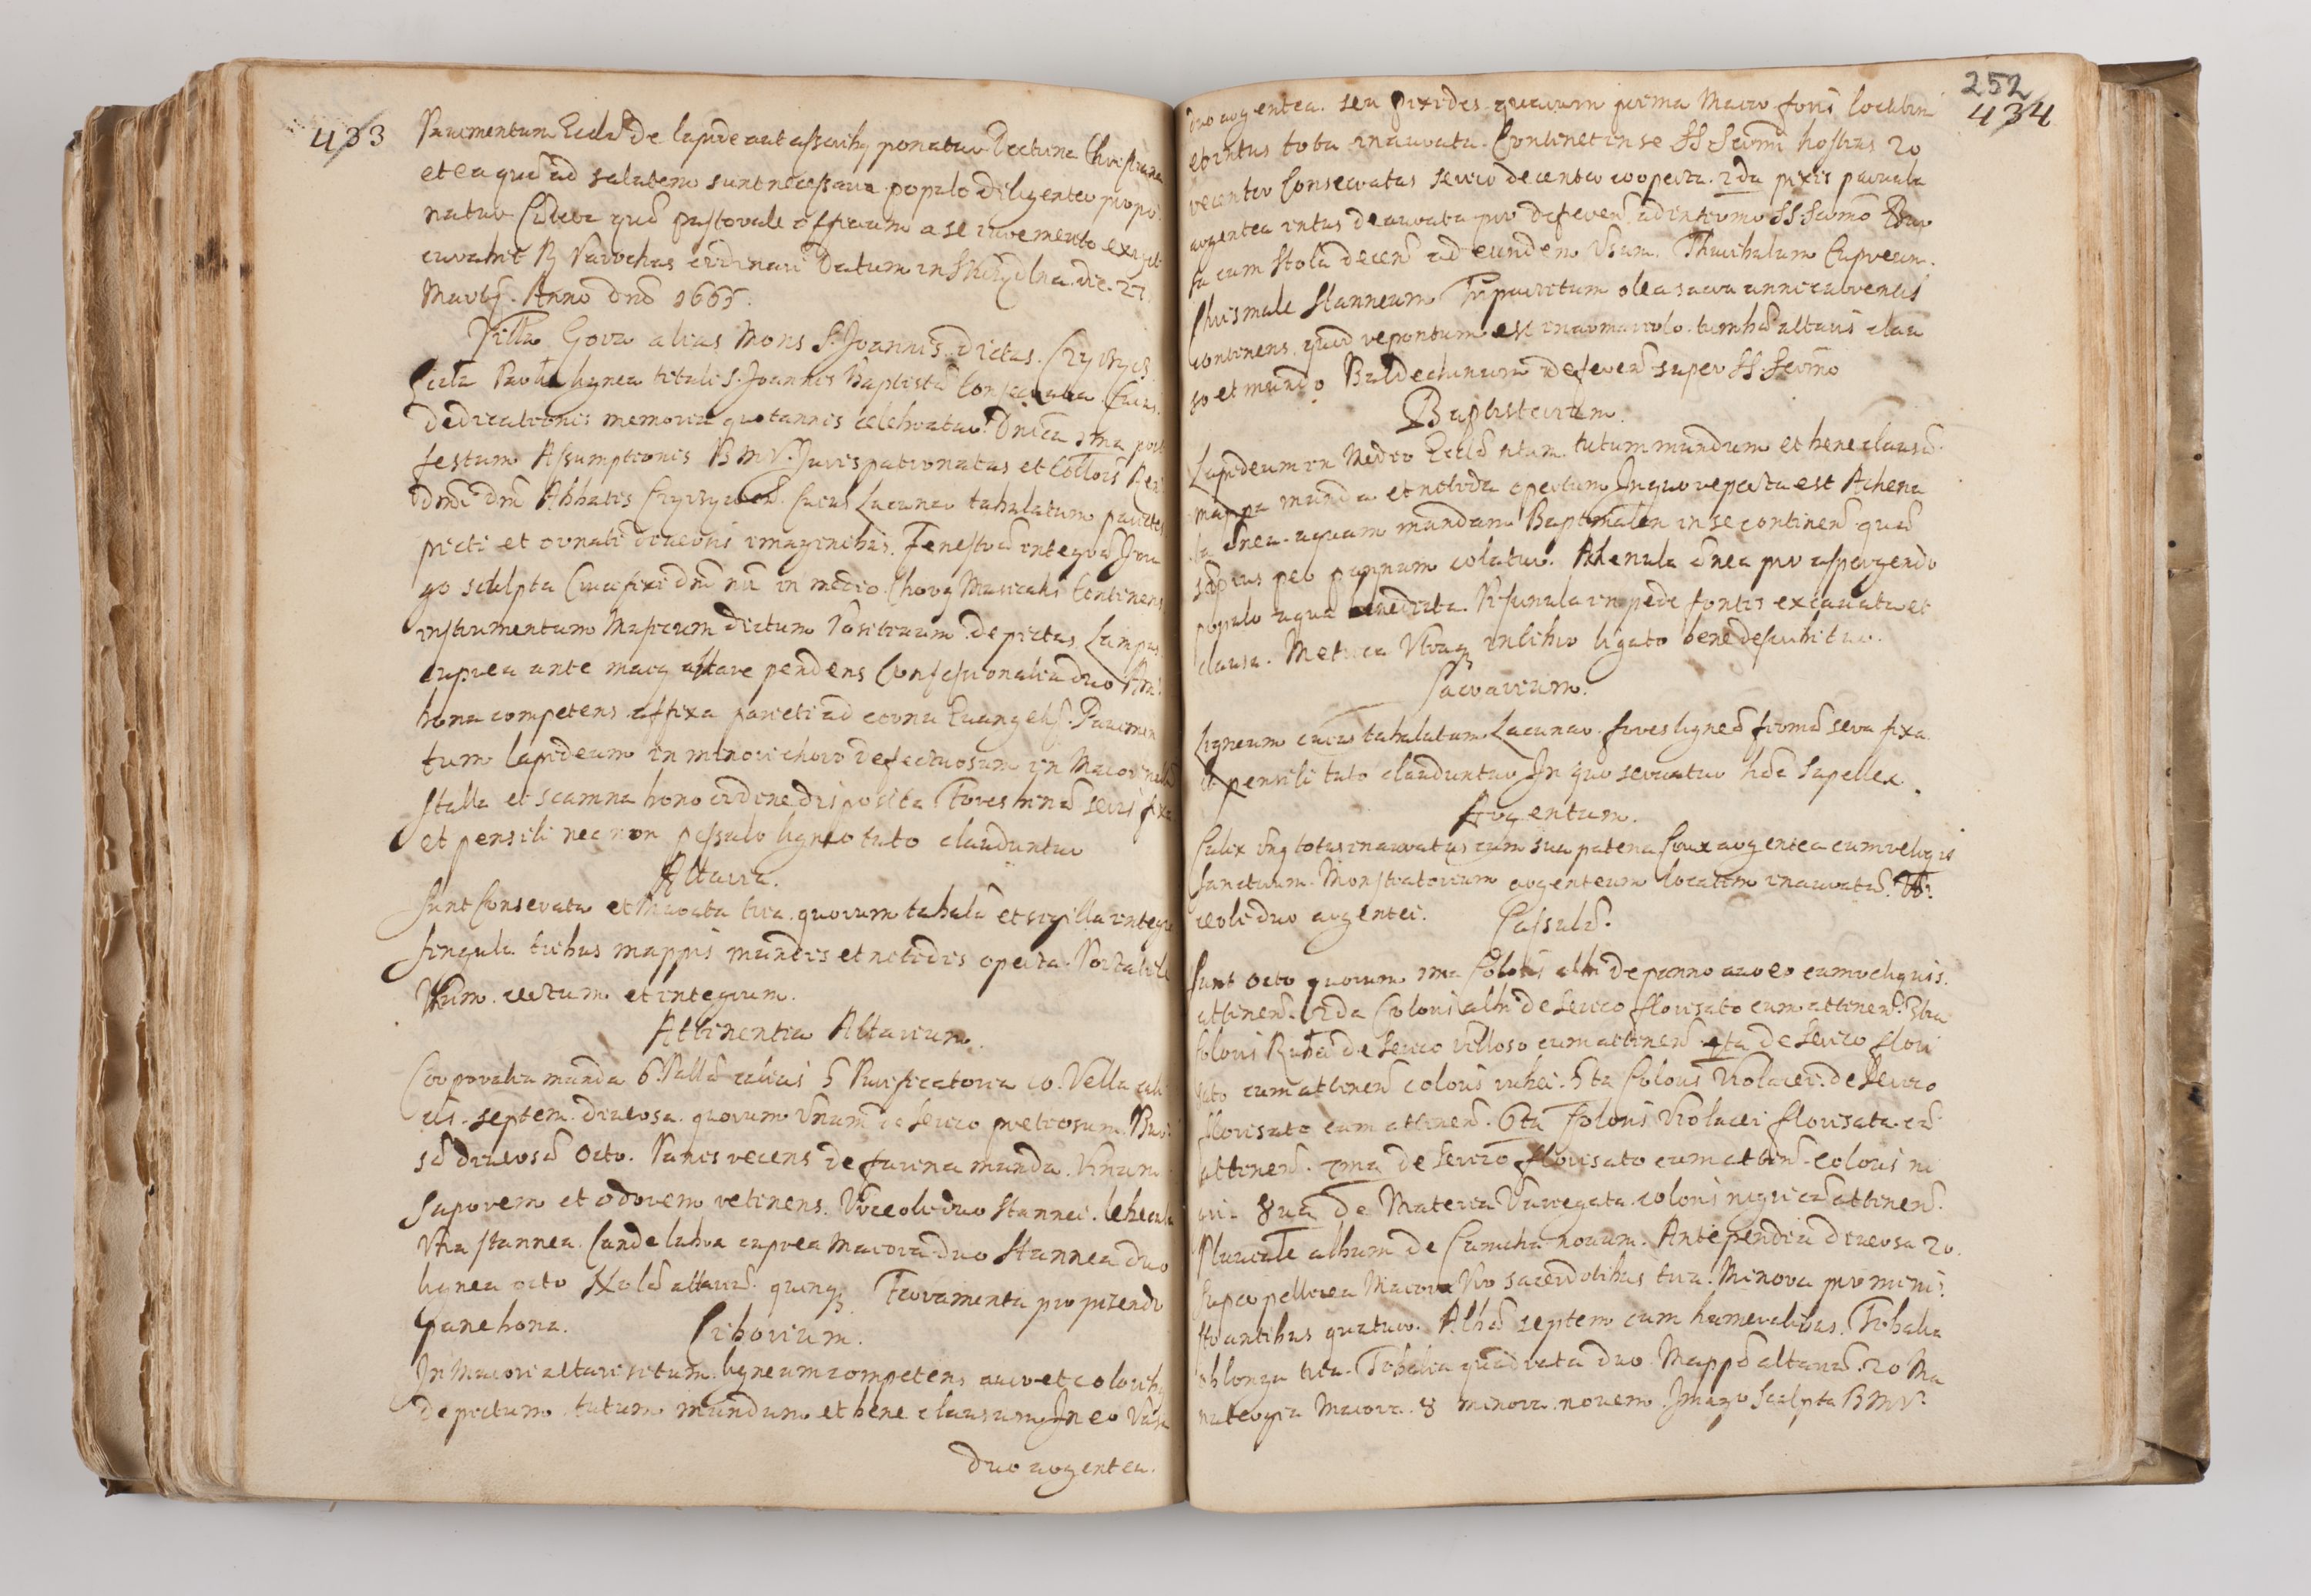 433
Pavimentum Eccles de lapide aut asseribq ponatur. Doctrina Christiana
et ea quæ ad salutem sunt necessaria populo diligenter propo
natur Cætera quæ pastorale officium a se
curabit R Parochus ordinari Datum in die 27
Martÿ. Anno dni 1665.
Villa Gora alias Mons S. Joannis dictus.
Eccla Paroh lignea tituli S. Joannis Baptistæ Consecrata. Cuius
dedicationis memoria quotannis celebratur. Dnica 1ma post
festum Assumptionis B M V. Juris patronatus et Colloïs Rev
dmi dni Abbatis Cuius Lacunar tabulatum parietes
picti et ornati diversis imaginibus. Fenestræ integræ Ima
go sculpta Crucifixi dni nri in medio. Chorq Musicalis Continens
instrumentum Musicum dictum Positivum depictus. Lampas
cuprea ante maiq altare pendens Confessionalia duo Am
bona competens affixa parieti ad cornu Evangelÿ. Pavimen
tum lapideum in minori choro defectuosum in Maiori
Stalla et scamna bono ordine disposita Fores seris fixa
et pensili nec non pessulo ligneo tuto clauduntur
Altaria.
Sunt Consecrata et Murata tria. quorum tabulæ et sigilla integra
singula tribus mappis mundis et nitidis operta. Portatile
Unum. rectum et integrum.
Attinentia Altarium.
Corporalia munda 6. Pallæ calicis 5 Purificatoria 10. Vella cali
cis. septem. diversa. quorum Unum de serico pretiosum. Bur
sæ diversæ Octo. Panis recens de farina munda. Vinum
Saporem et odorem retinens. Urceoli duo stannei.
Una stannea. Candelabra cuprea Maiora duo Stannea duo
lignea octo altariu quinq. Ferramenta pro pizendo
pane bona. Ciborium.
In Maiori altari situm ligneum competens auro et coloribq
depictum tutum mundum et bene clausum. In eo Vasa
duo argentea.
252
434
duo argentea. seu pixides quarum prima Maior foris locatim
et intus tota inaurata. Continet in se SS. Scrmi hostias 20
recenter Consecratas serico decenter cooperta. 2da pixis parvula
argentea intus deaurata pro deferen ad infirmos SS. Scrmo Bur
sa cum Stola decen ad eundem Usum. Thuribulum Cupreum.
Chrismale Stanneum Tripartitum olea sacra anni currentis
continens. quod repositum est in armariolo. tumbæ altaris clau
so et mundo Baldechinum deferen super SS. Scrmo
Baptisterium.
Lapideum in Medio Ecclæ situm tutum mundum et bene clausu.
mappa munda et nitida opertum. In quo reposita est Ahenu
la ænea aquam mundam Baptismalem in se continens quæ
sæpius per pannum colatur. Ahenula ænea pro aspergendo
populo aqua benedicta. Piscinula in pede fontis excavata et
clausa. Metrica Utraq in libro ligato bene describitur.
Sacrarium.
Ligneum cuius tabulatum Lacunar fores ligneæ firmæ sera fixa
et pensili tuto clauduntur In quo servatur hæc Supellex.
Argentum.
Calix unq totus inauratus cum sua patena Crux argentea cum reliqis
Sanctorum. Monstratorium argenteum locatim inauratu. Ur
ceoli duo argentei. Casulæ.
Sunt Octo quorum 1ma Coloris albi de panno aureo cum reliquis.
attinen. 2da Coloris albi de serico florisato cum attinen. 3tia
Coloris Rubei de Serico villoso cum attinen 4ta de Serico flori
sato cum attinen coloris rubei. 5ta Coloris Violacei. de Serico
florisato cum attinen. 6ta Coloris Violacei florisata. cu
attinen. 7ma de Serico florisato cum attinen. coloris ni
gri. 8va de Materia Variegata coloris nigri cu attinen.
Pluviale album de Camcha novum. Antependia diversa 20.
Superpellicea Maiora Pro sacerdotibus tria. Minora pro mini
strantibus quatuor. Albæ septem cum humeralibus. Tobalia
oblonga tria. Tobalia quadrata duo. Mappæ altariu. 20 Ma
nutergia Maiora. 8 minora. novem. Imago Sculpta B M V.